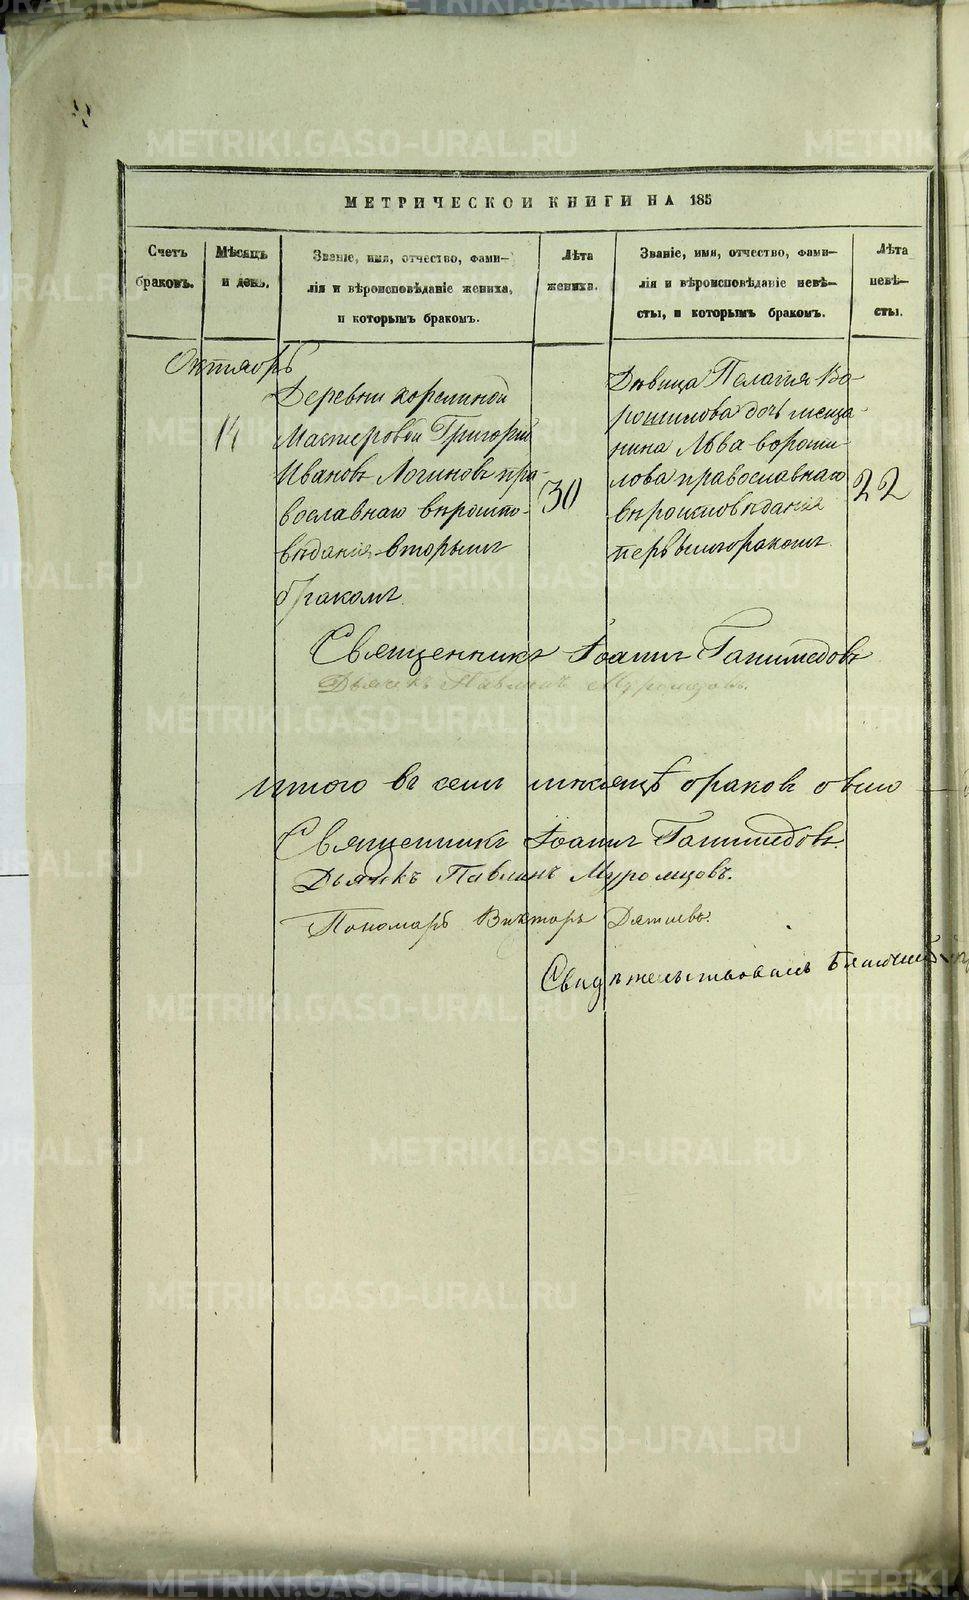 МЕТРИЧЕСКОЙ КНИГИ НА 185
Счетъ браковъ.
Мѣсяцъ и день.
Званіе, имя, отчество, фами-
лія и вѣроисповѣданіе жениха,
и которымъ бракомъ.
Лѣта жениха.
Званіе, имя, отчество, фами-
лія и вѣроисповѣданіе невѣ-
сты, и которымъ бракомъ.
Лѣта невѣ-
сты.
Октябрь
14
Деревни
Мастеровой Григорій
Ивановъ Логиновъ пра-
вославнаго вѣроиспо-
вѣданія вторымъ
бракомъ
30
Дѣвица Пелагія Во-
рошилова дочь меща-
нина Льва Вороши-
лова православнаго
вѣроисповѣданія
первымъ бракомъ
22
Священникъ Іоаннъ Ганимедовъ
Дьячекъ Павлинъ Муромцовъ.
Итого въ семъ мѣсяцѣ браковъ
Священникъ Іоаннъ Ганимедовъ.
Дьячекъ Павлинъ Муромцовъ.
Пономарь Викторъ
Свидѣтельствовалъ Благочинный
METRIKI.GASO-URAL.RU